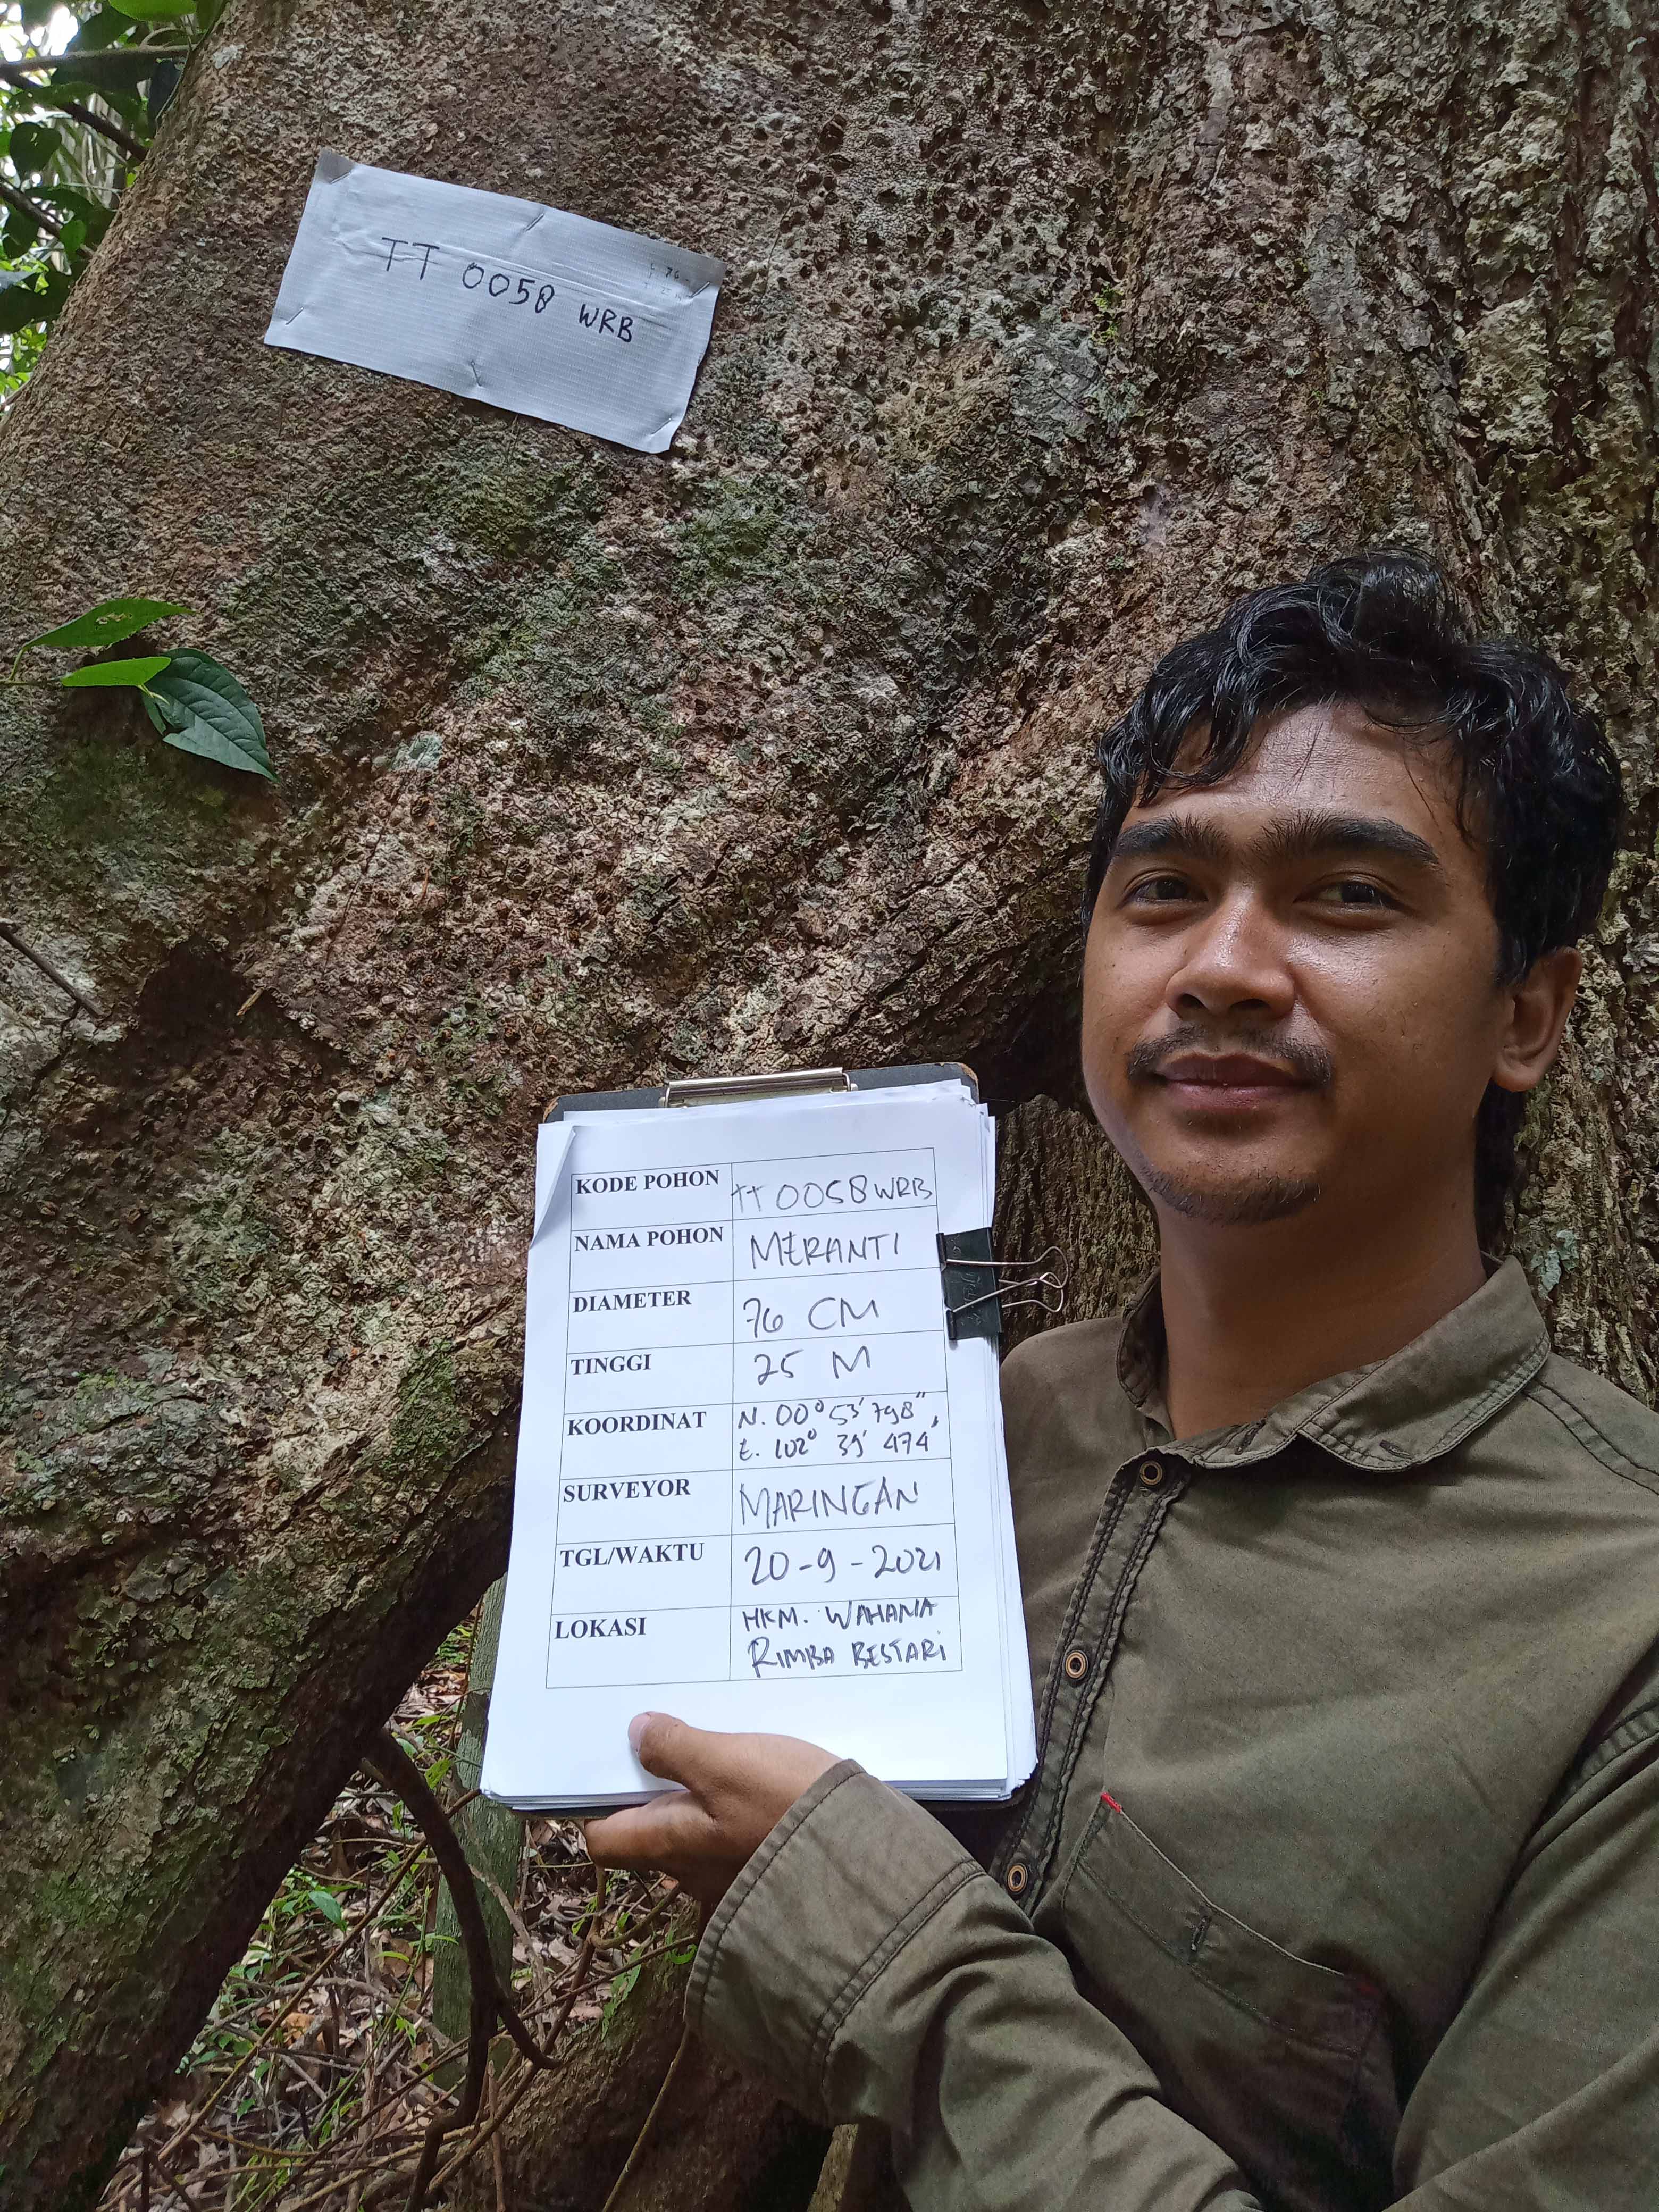 TT 0058 WRB
KODE POHON TT 0058 WRB
NAMA POHON MERANTI
DIAMETER 76 CM
TINGGI 25 M
KOORDINAT N. 00° 53' 798",
E. 102° 39' 474'
SURVEYOR MARINGAN
TGL/WAKTU 20-9-2021
LOKASI HKM. WAHANA
RIMBA BESTARI